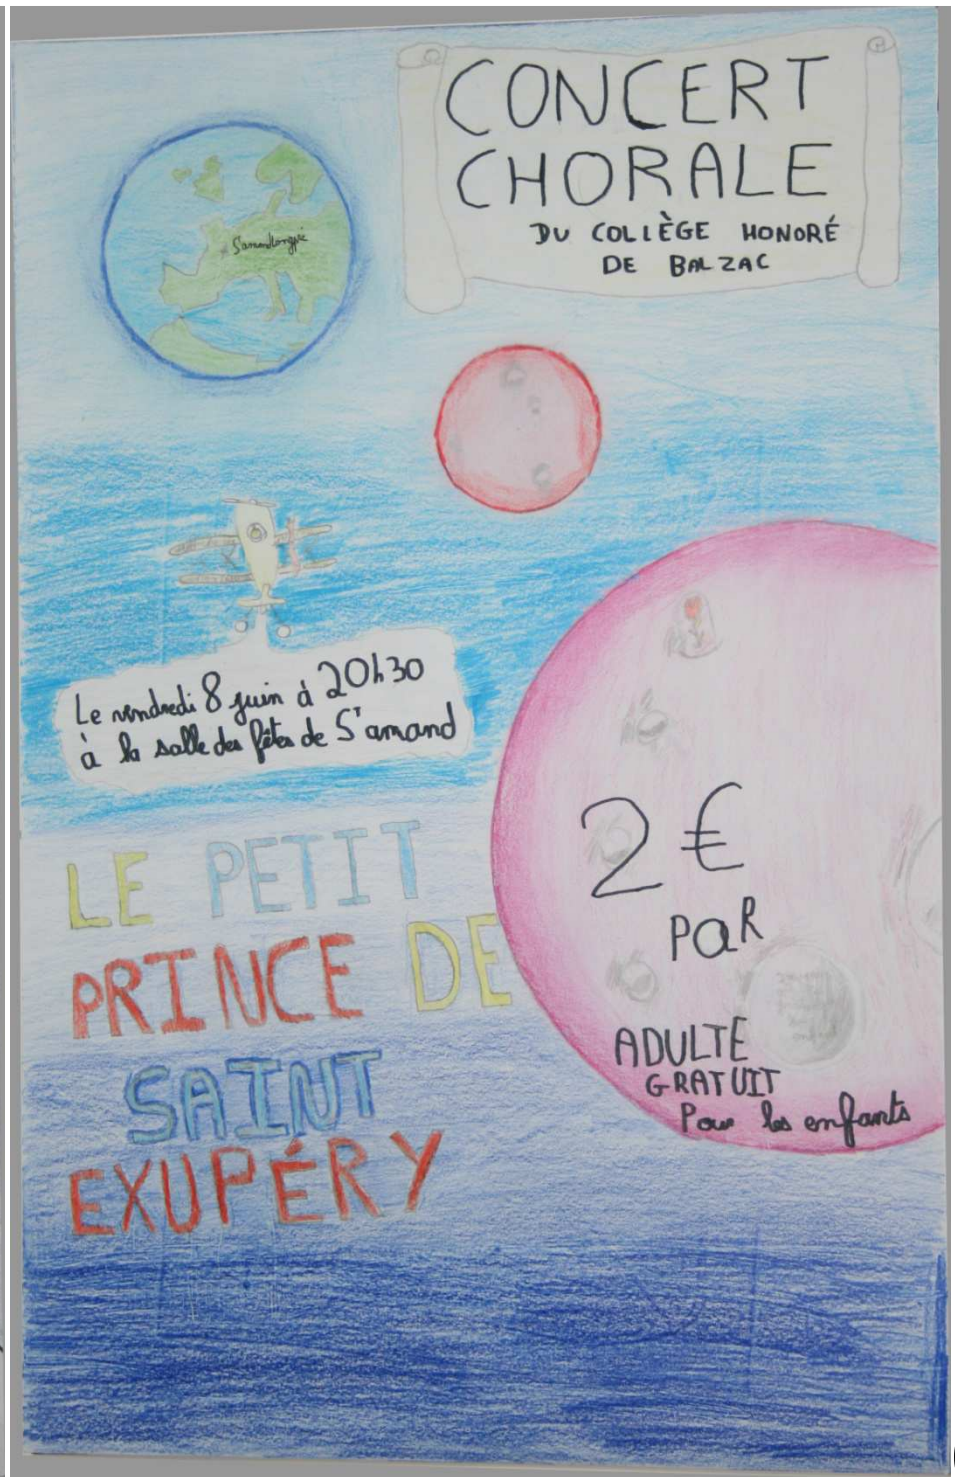 CONCERT
CHORALE
DU COLLÈGE HONORÉ
DE BALZAC
Le vendredi 8 juin à 20h30
à la salle des fêtes de Sᵗ amand
LE PETIT
PRINCE DE
SAINT
EXUPÉRY
2 €
PaR
ADULTE
GRATUIT
Pour les enfants